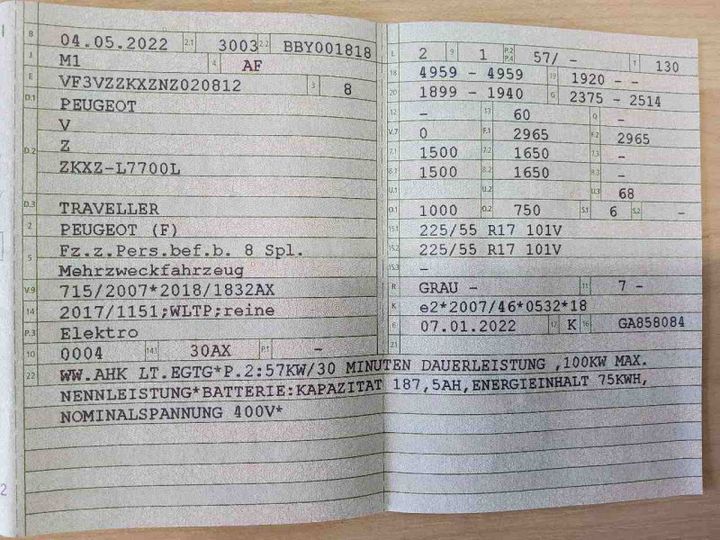 B 04.05.2022 2.1 3003 2.2 BBY001818
J M1 4 AF
E VF3VZZKXZNZ020812 3 8
D.1 PEUGEOT
V
D.2 Z
ZKXZ-L7700L
D.3 TRAVELLER
2 PEUGEOT (F)
5 Fz.z.Pers.bef.b. 8 Spl.
Mehrzweckfahrzeug
V.9 715/2007*2018/1832AX
14 2017/1151;WLTP;reine
P.3 Elektro
10 0004 14.1 30AX P.1 -
L 2 9 1 P.2 P.4 57/ - T 130
18 4959 - 4959 19 1920 - -
20 1899 - 1940 G 2375 - 2514
12 - 13 60 Q -
V.7 0 F.1 2965 F.2 2965
7.1 1500 7.2 1650 7.3 -
8.1 1500 8.2 1650 8.3 -
U.1 U.2 U.3 68
O.1 1000 O.2 750 S.1 6 S.2 -
15.1 225/55 R17 101V
15.2 225/55 R17 101V
15.3 -
R GRAU - 11 7 -
K e2*2007/46*0532*18
6 07.01.2022 17 K 16 GA858084
21
22 WW.AHK LT.EGTG*P.2:57KW/30 MINUTEN DAUERLEISTUNG ,100KW MAX.
NENNLEISTUNG*BATTERIE:KAPAZITAT 187,5AH,ENERGIEINHALT 75KWH,
NOMINALSPANNUNG 400V*
2